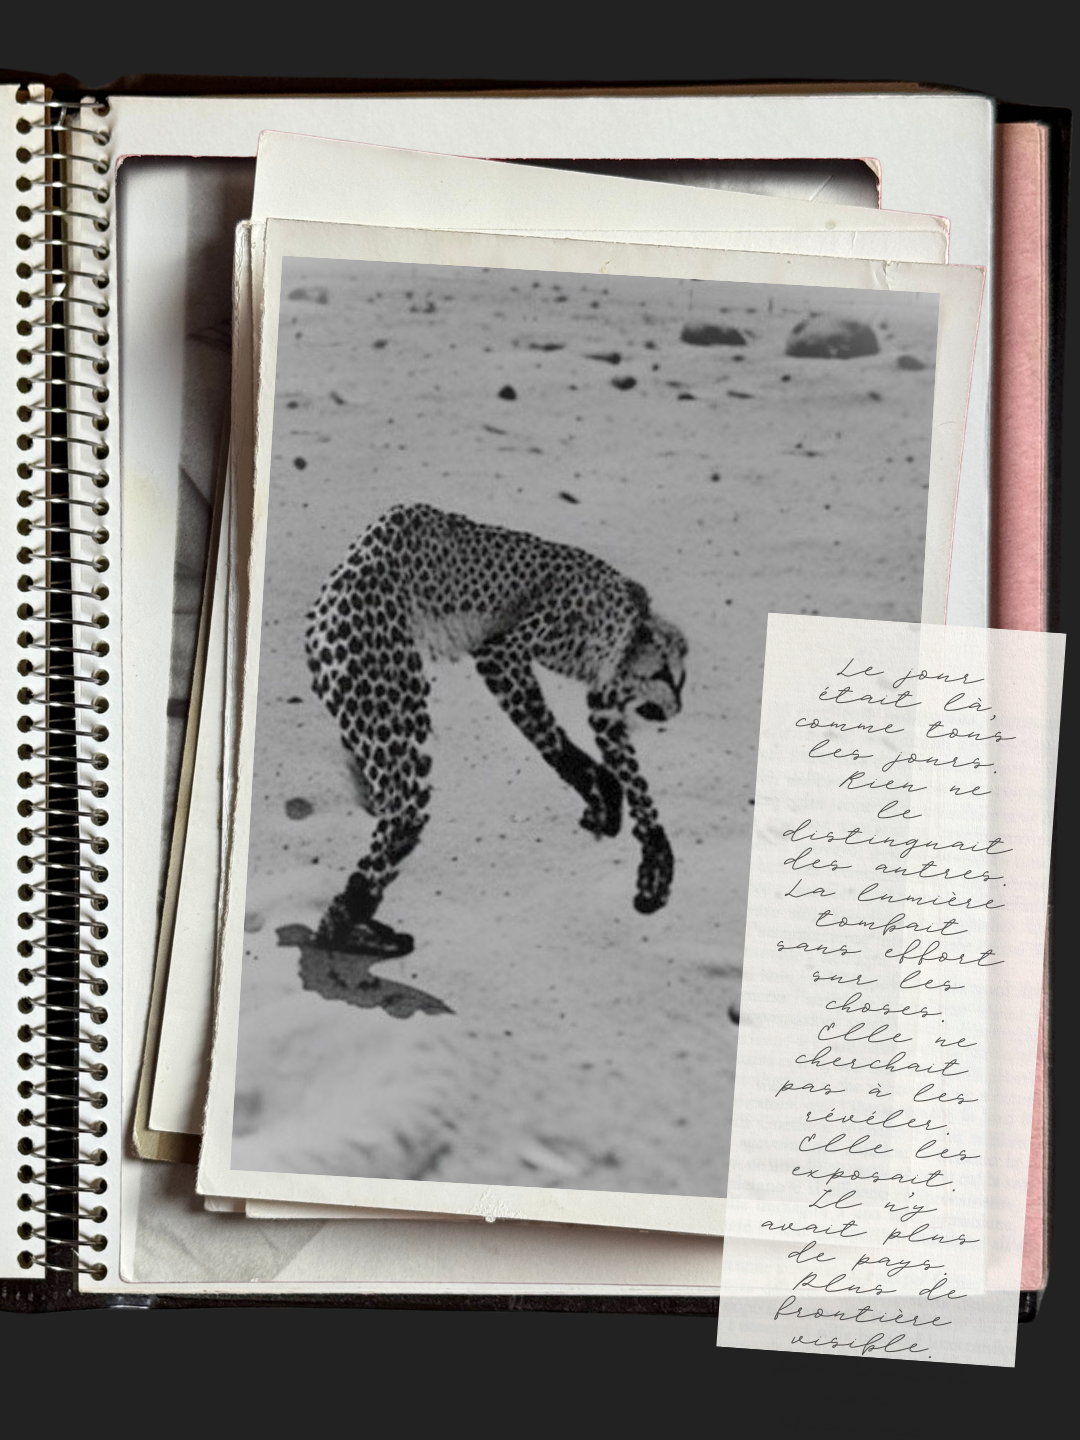 Le jour
était là,
comme tous
les jours.
Rien ne
le
distinguait
des autres.
La lumière
tombait
sans effort
sur les
choses.
Elle ne
cherchait
pas à les
révéler.
Elle les
exposait.
Il n'y
avait plus
de pays.
Plus de
frontière
visible.